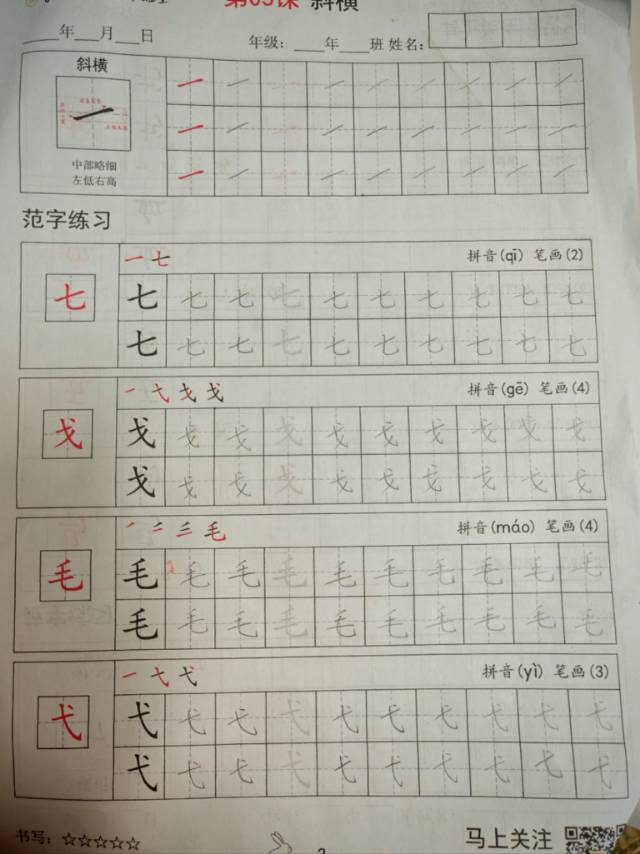 第03课 斜横
年 月 日
年级： 年 班 姓名：
斜横
中部略细
左低右高
范字练习
一 七 拼音(qī) 笔画(2)
七 七 七 七 七 七 七 七 七 七 七
七 七 七 七 七 七 七 七 七 七
一 弋 戈 戈 拼音(gē) 笔画(4)
戈 戈 戈 戈 戈 戈 戈 戈 戈 戈 戈
戈 戈 戈 戈 戈 戈 戈 戈 戈 戈
毛 拼音(máo) 笔画(4)
毛 毛 毛 毛 毛 毛 毛 毛 毛 毛 毛
毛 毛 毛 毛 毛 毛 毛 毛 毛 毛
一 弋 弋 拼音(yì) 笔画(3)
弋 弋 弋 弋 弋 弋 弋 弋 弋 弋 弋
弋 弋 弋 弋 弋 弋 弋 弋 弋 弋
书写：☆☆☆☆☆ 马上关注